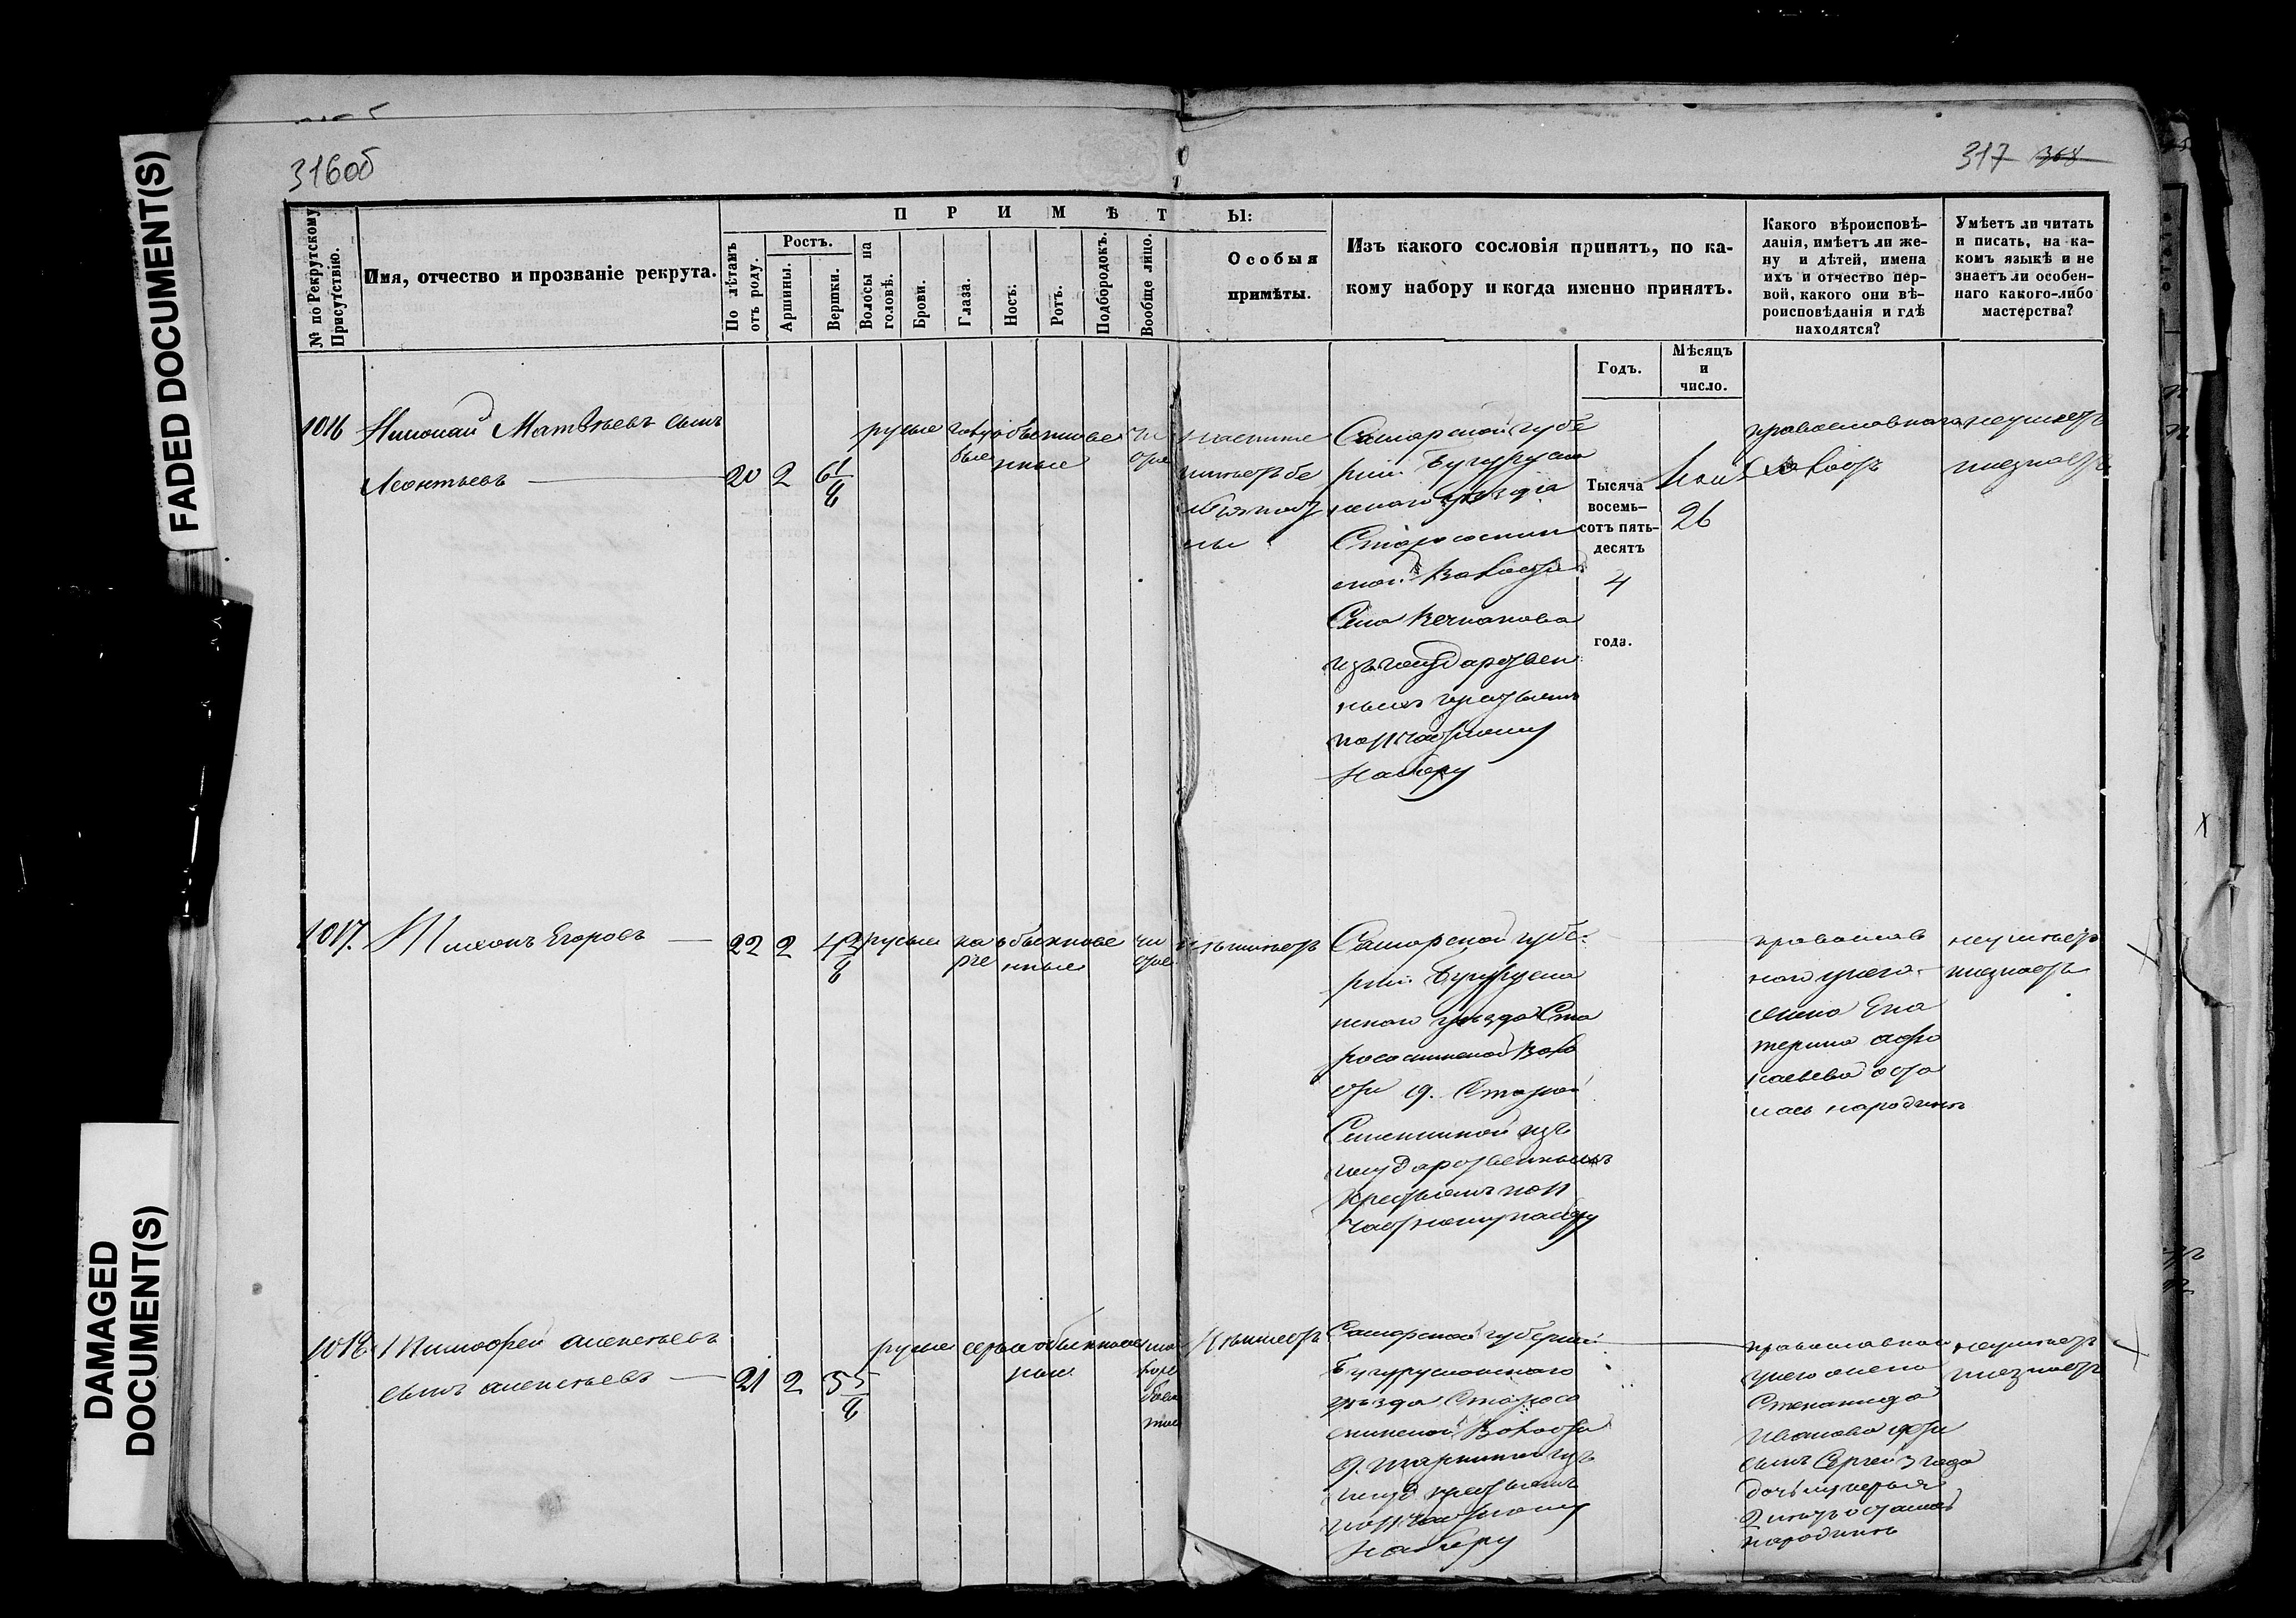 FADED DOCUMENT(S)
DAMAGED
DOCUMENT(S)
316об
317 368
№ по Рекрутскому
Присутствію.
Имя, отчество и прозваніе рекрута.
ПРИМѢТЫ:
По лѣтамъ
отъ роду.
Ростъ.
Аршины.
Вершки.
Волосы на
головѣ.
Брови.
Глаза.
Носъ.
Ротъ.
Подбородокъ.
Вообще лицо.
Особыя
примѣты.
Изъ какого сословія принятъ, по ка-
кому набору и когда именно принятъ.
Годъ.
Мѣсяцъ
и
число.
Какого вѣроисповѣ-
данія, имѣетъ ли же-
ну и дѣтей, имена
ихъ и отчество пер-
вой, какого они вѣ-
роисповѣданія и гдѣ
находятся?
Умѣетъ ли читать
и писать, на ка-
комъ языкѣ и не
знаетъ ли особен-
наго какого-либо
мастерства?
1016
Николай Матвѣевъ сынъ
Леонтьевъ
20
2
6 1/8
русые
голу
бые
обыкновен
ные
чи
стое
Самарской губе
рніи Бугурусла
нскаго уѣзда
Старососнин
ской Волости
Села Кечканова
изъ государствен
ныхъ крестьянъ
по 11 частному
набору
Тысяча
восемь-
сотъ пять-
десятъ
4
года.
26
православнаго
холостъ
неумѣетъ
и незнаетъ
1017.
Тихонъ Егоровъ
22
2
4 2/8
русые
ка
ріе
обыкнове
нные
чи
стое
Неимѣетъ
Самарской губе
рніи Бугурусла
нскаго уѣзда Ста
рососнинской Воло
сти д. Старой
изъ
государственныхъ
крестьянъ по 11
частному набору
православ
наго у него
жена Ека
терина Афа
насьева оста
лась народинѣ
неумѣетъ
и незнаетъ
1018
Тимофей Алексѣевъ
сынъ Алексѣевъ
21
2
5 5/8
русые
серые
обыкновен
ные
Неимѣетъ
Самарской губерніи
Бугурусланскаго
уѣзда Старосо
снинской Волости
изъ
госуд крестьянъ
по 11 частному
набору
православнаго
у него жена
Степанида
Иванова дѣти
сынъ Сергей 3 года
дочь
остались
народинѣ
неумѣетъ
и незнаетъ